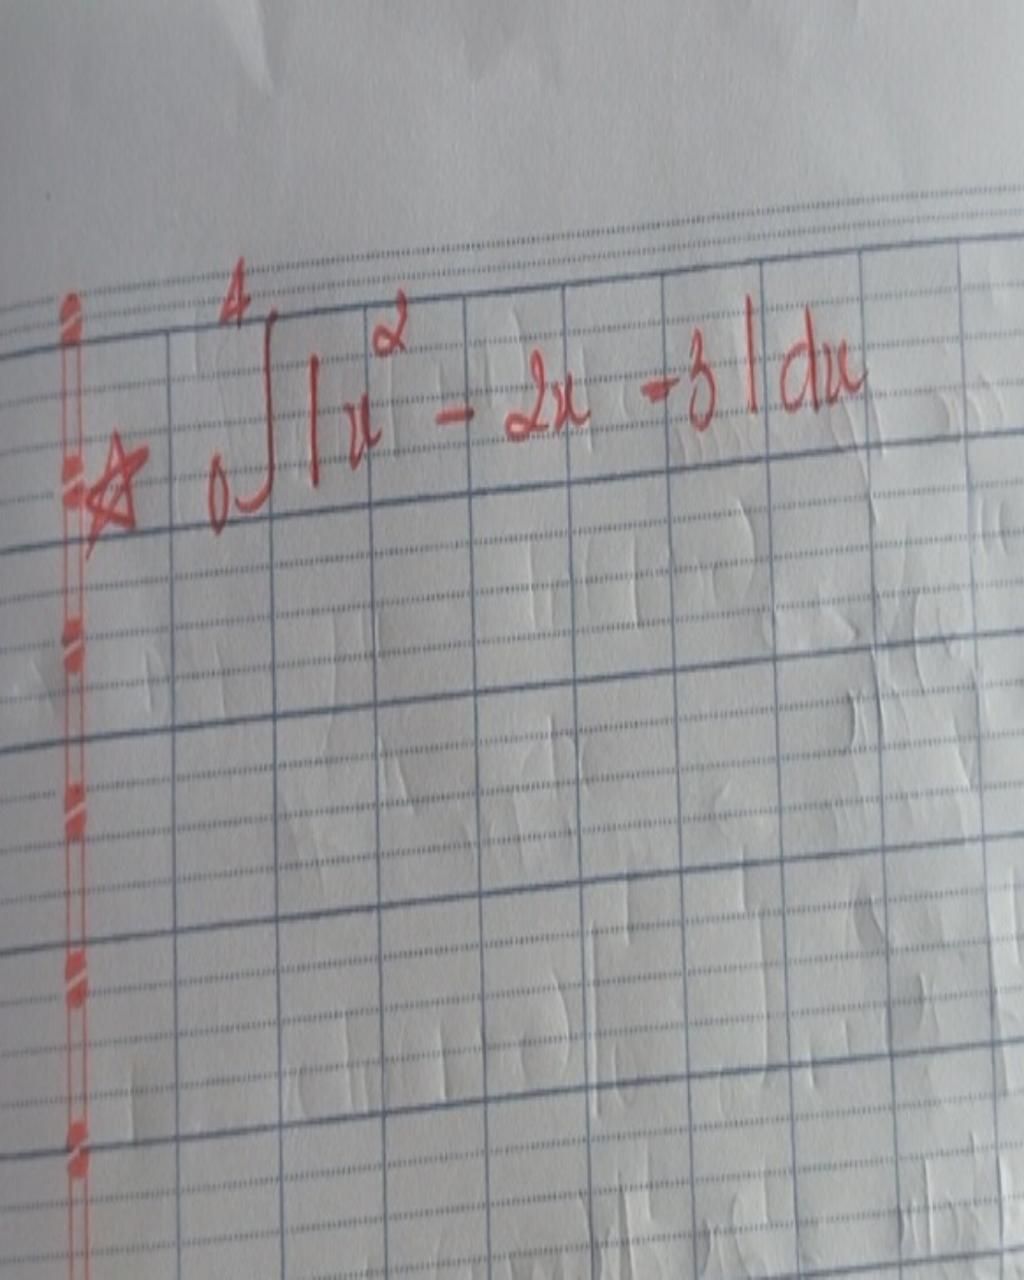 ☆ ₀∫⁴ |x² - 2x - 3| dx